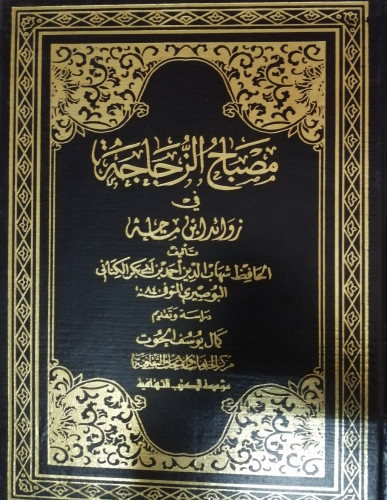 مصباح الزجاجة
في
زوائد ابن ماجة
تأليف
الحافظ شهاب الدين أحمد بن أبي بكر الكناني
البوصيري المتوفى ٨٤٠
دراسة وتقديم
كمال يوسف الحوت
مركز الخدمات والأبحاث الثقافية
مؤسسة الكتب الثقافية